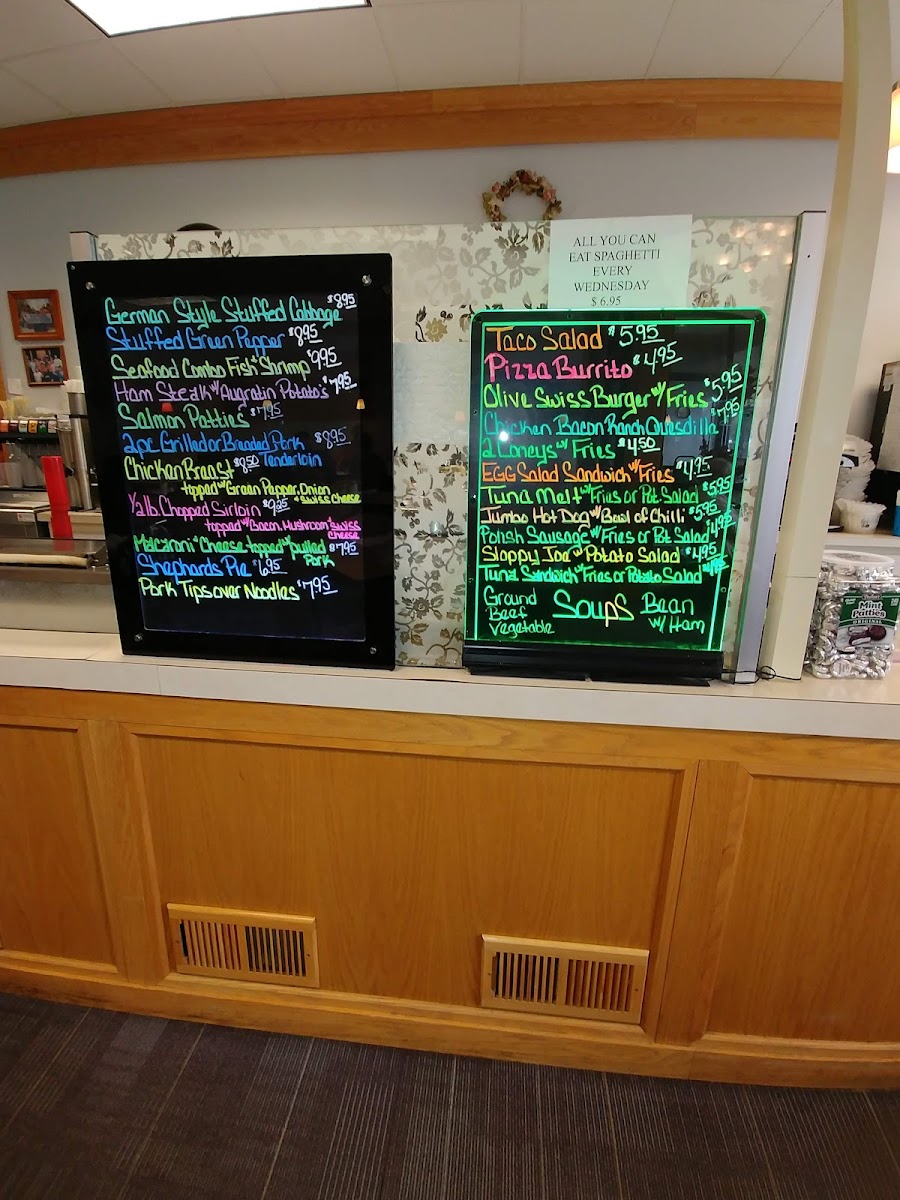 German Style Stuffed Cabbage $8.95
Stuffed Green Pepper $8.95
Seafood Combo Fish + Shrimp $9.95
Ham Steak w/ Augratin Potato's $7.95
Salmon Patties $7.95
2pc Grilled or Breaded Pork $8.95
Tenderloin
Chicken Breast $8.50
topped w/ Green Pepper, Onion
+ Swiss Cheese
1/2 lb. Chopped Sirloin $9.25
topped w/ Bacon, Mushroom + Swiss
Cheese
Macaroni + Cheese topped w/ pulled $7.95
Pork
Shephards Pie $6.95
Pork Tips over Noodles $7.95
ALL YOU CAN
EAT SPAGHETTI
EVERY
WEDNESDAY
$ 6.95
Taco Salad $5.95
Pizza Burrito $4.95
Olive Swiss Burger w/ Fries $5.95
Chicken Bacon Ranch Quesdilla $7.95
2 Coneys w/ Fries $4.50
EGG Salad Sandwich w/ Fries $4.95
Tuna Melt w/ Fries or Pot Salad $5.95
Jumbo Hot Dog w/ Bowl of Chili $5.95
Polish Sausage w/ Fries or Pot Salad $4.95
Sloppy Joe w/ Potato Salad $4.95
Tuna Sandwich w/ Fries or Potato Salad $4.95
Soups
Ground
Beef
Vegetable
Bean
w/ Ham
Mint
Patties
ORIGINAL